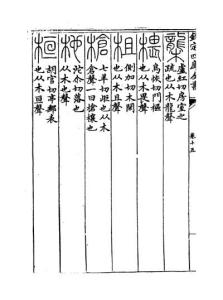 欽定四庫全書
卷十五
櫳
盧紅切房室之
疏也从木龍聲
椳
烏恢切門樞
也从木畏聲
柤
側加切木閑
也从木且聲
槍
七羊切歫也从木
倉聲一曰槍欀也
杝
池尒切落也
从木也聲
桓
胡官切亭郵表
也从木亘聲